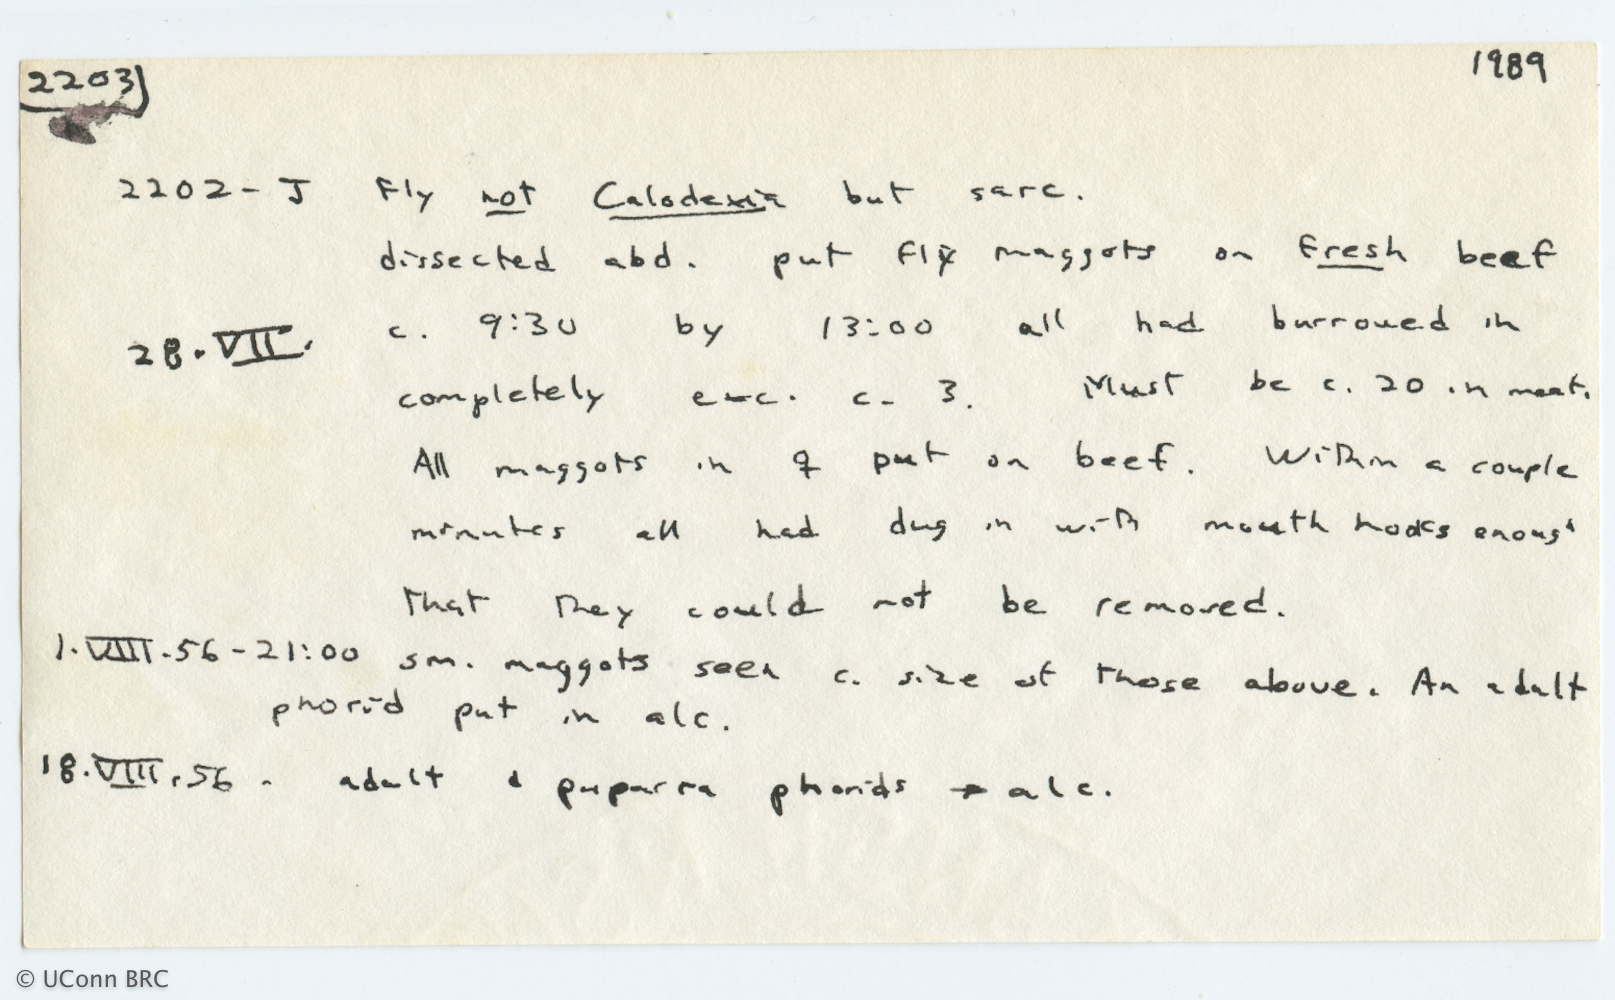 2203
1989
2202-J Fly not Calodexia but sarc.
dissected abd. put fly maggots on fresh beef
28.VII. c. 9:30 by 13:00 all had burrowed in
completely exc. c. 3. Must be c. 20 in meat.
All maggots in ♀ put on beef. Within a couple
minutes all had dug in with mouth hooks enough
that they could not be removed.
1.VIII.56-21:00 sm. maggots seen c. size of those above. An adult
phorid put in alc.
18.VIII.56 - adult & puparia phorids → alc.
© UConn BRC